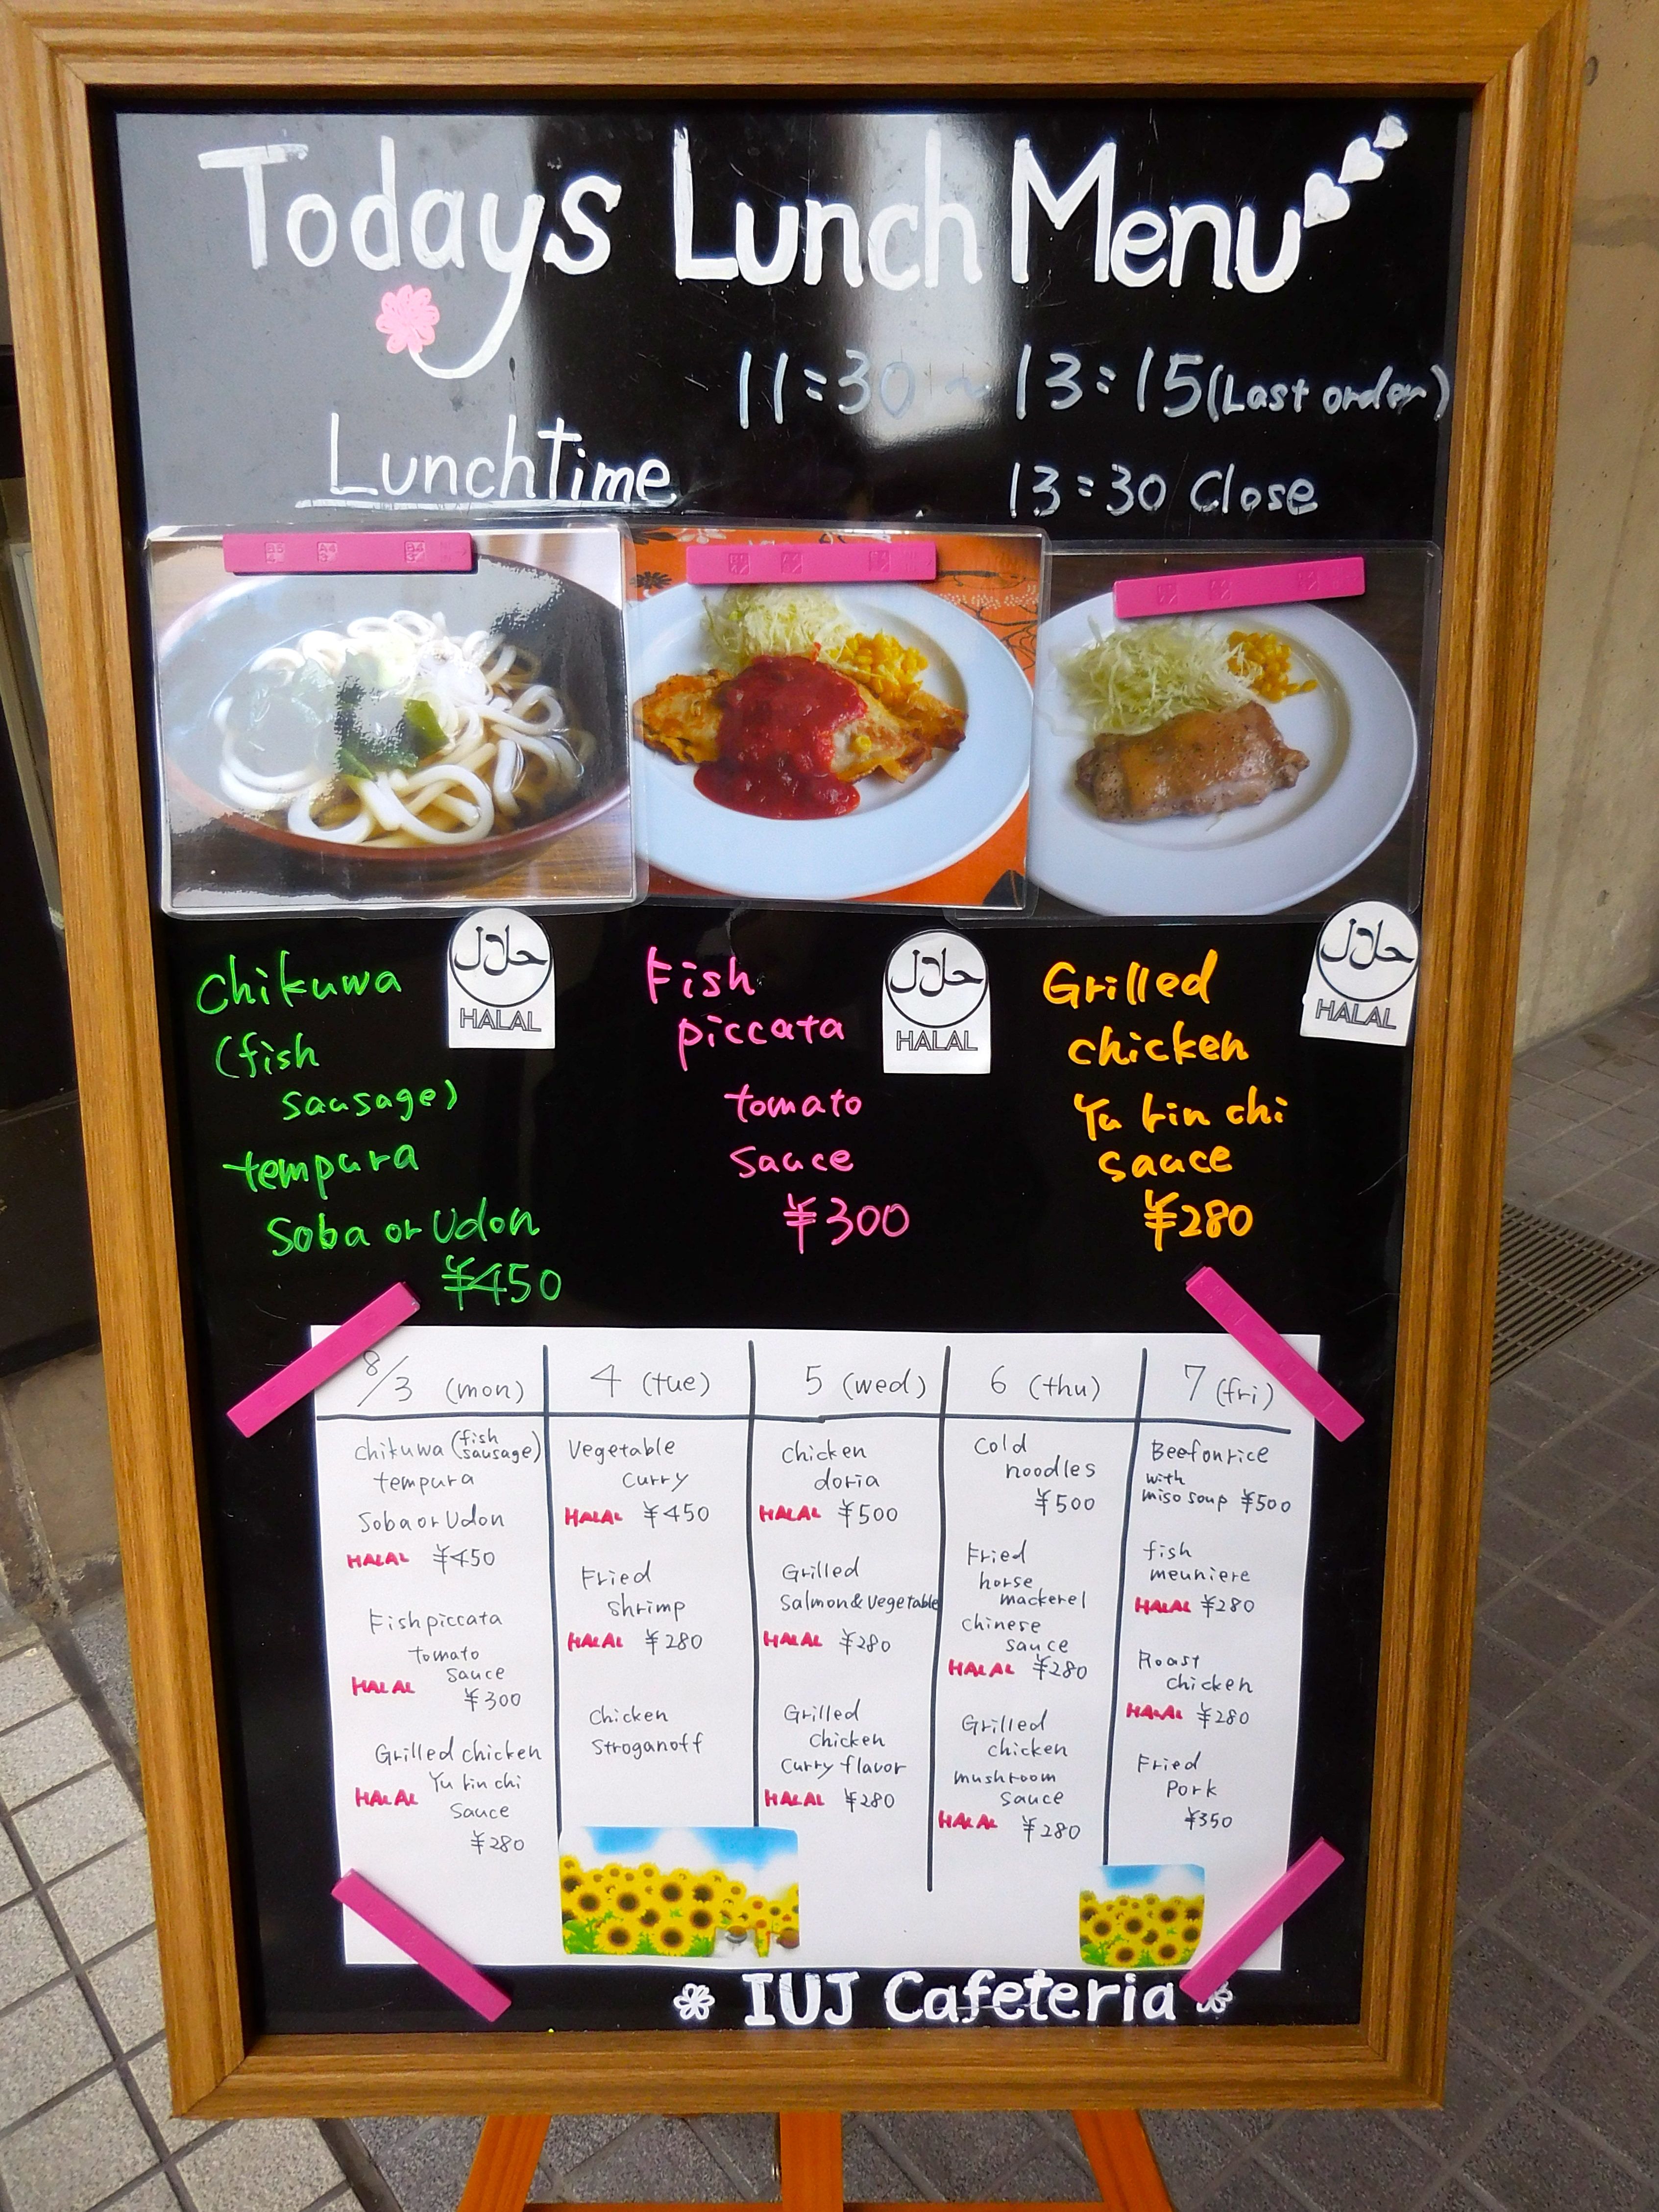 Todays Lunch Menu
11:30 ~ 13:15 (Last order)
Lunchtime
13:30 Close
Chikuwa
(fish
sausage)
tempura
Soba or Udon
¥450
حلال
HALAL
Fish
piccata
tomato
sauce
¥300
حلال
HALAL
Grilled
chicken
Yu rin chi
sauce
¥280
حلال
HALAL
8/3 (mon)
Chikuwa (fish sausage)
tempura
Soba or Udon
HALAL ¥450
Fish piccata
tomato
sauce
HALAL ¥300
Grilled chicken
Yu rin chi
HALAL sauce
¥280
4 (tue)
Vegetable
curry
HALAL ¥450
Fried
shrimp
HALAL ¥280
Chicken
Stroganoff
5 (wed)
Chicken
doria
HALAL ¥500
Grilled
Salmon & Vegetable
HALAL ¥280
Grilled
chicken
Curry flavor
HALAL ¥280
6 (thu)
Cold
noodles
¥500
Fried
horse
mackerel
Chinese
sauce
HALAL ¥280
Grilled
chicken
mushroom
sauce
HALAL ¥280
7 (fri)
Beef on rice
with
miso soup ¥500
fish
meuniere
HALAL ¥280
Roast
chicken
HALAL ¥280
Fried
Pork
¥350
IUJ Cafeteria